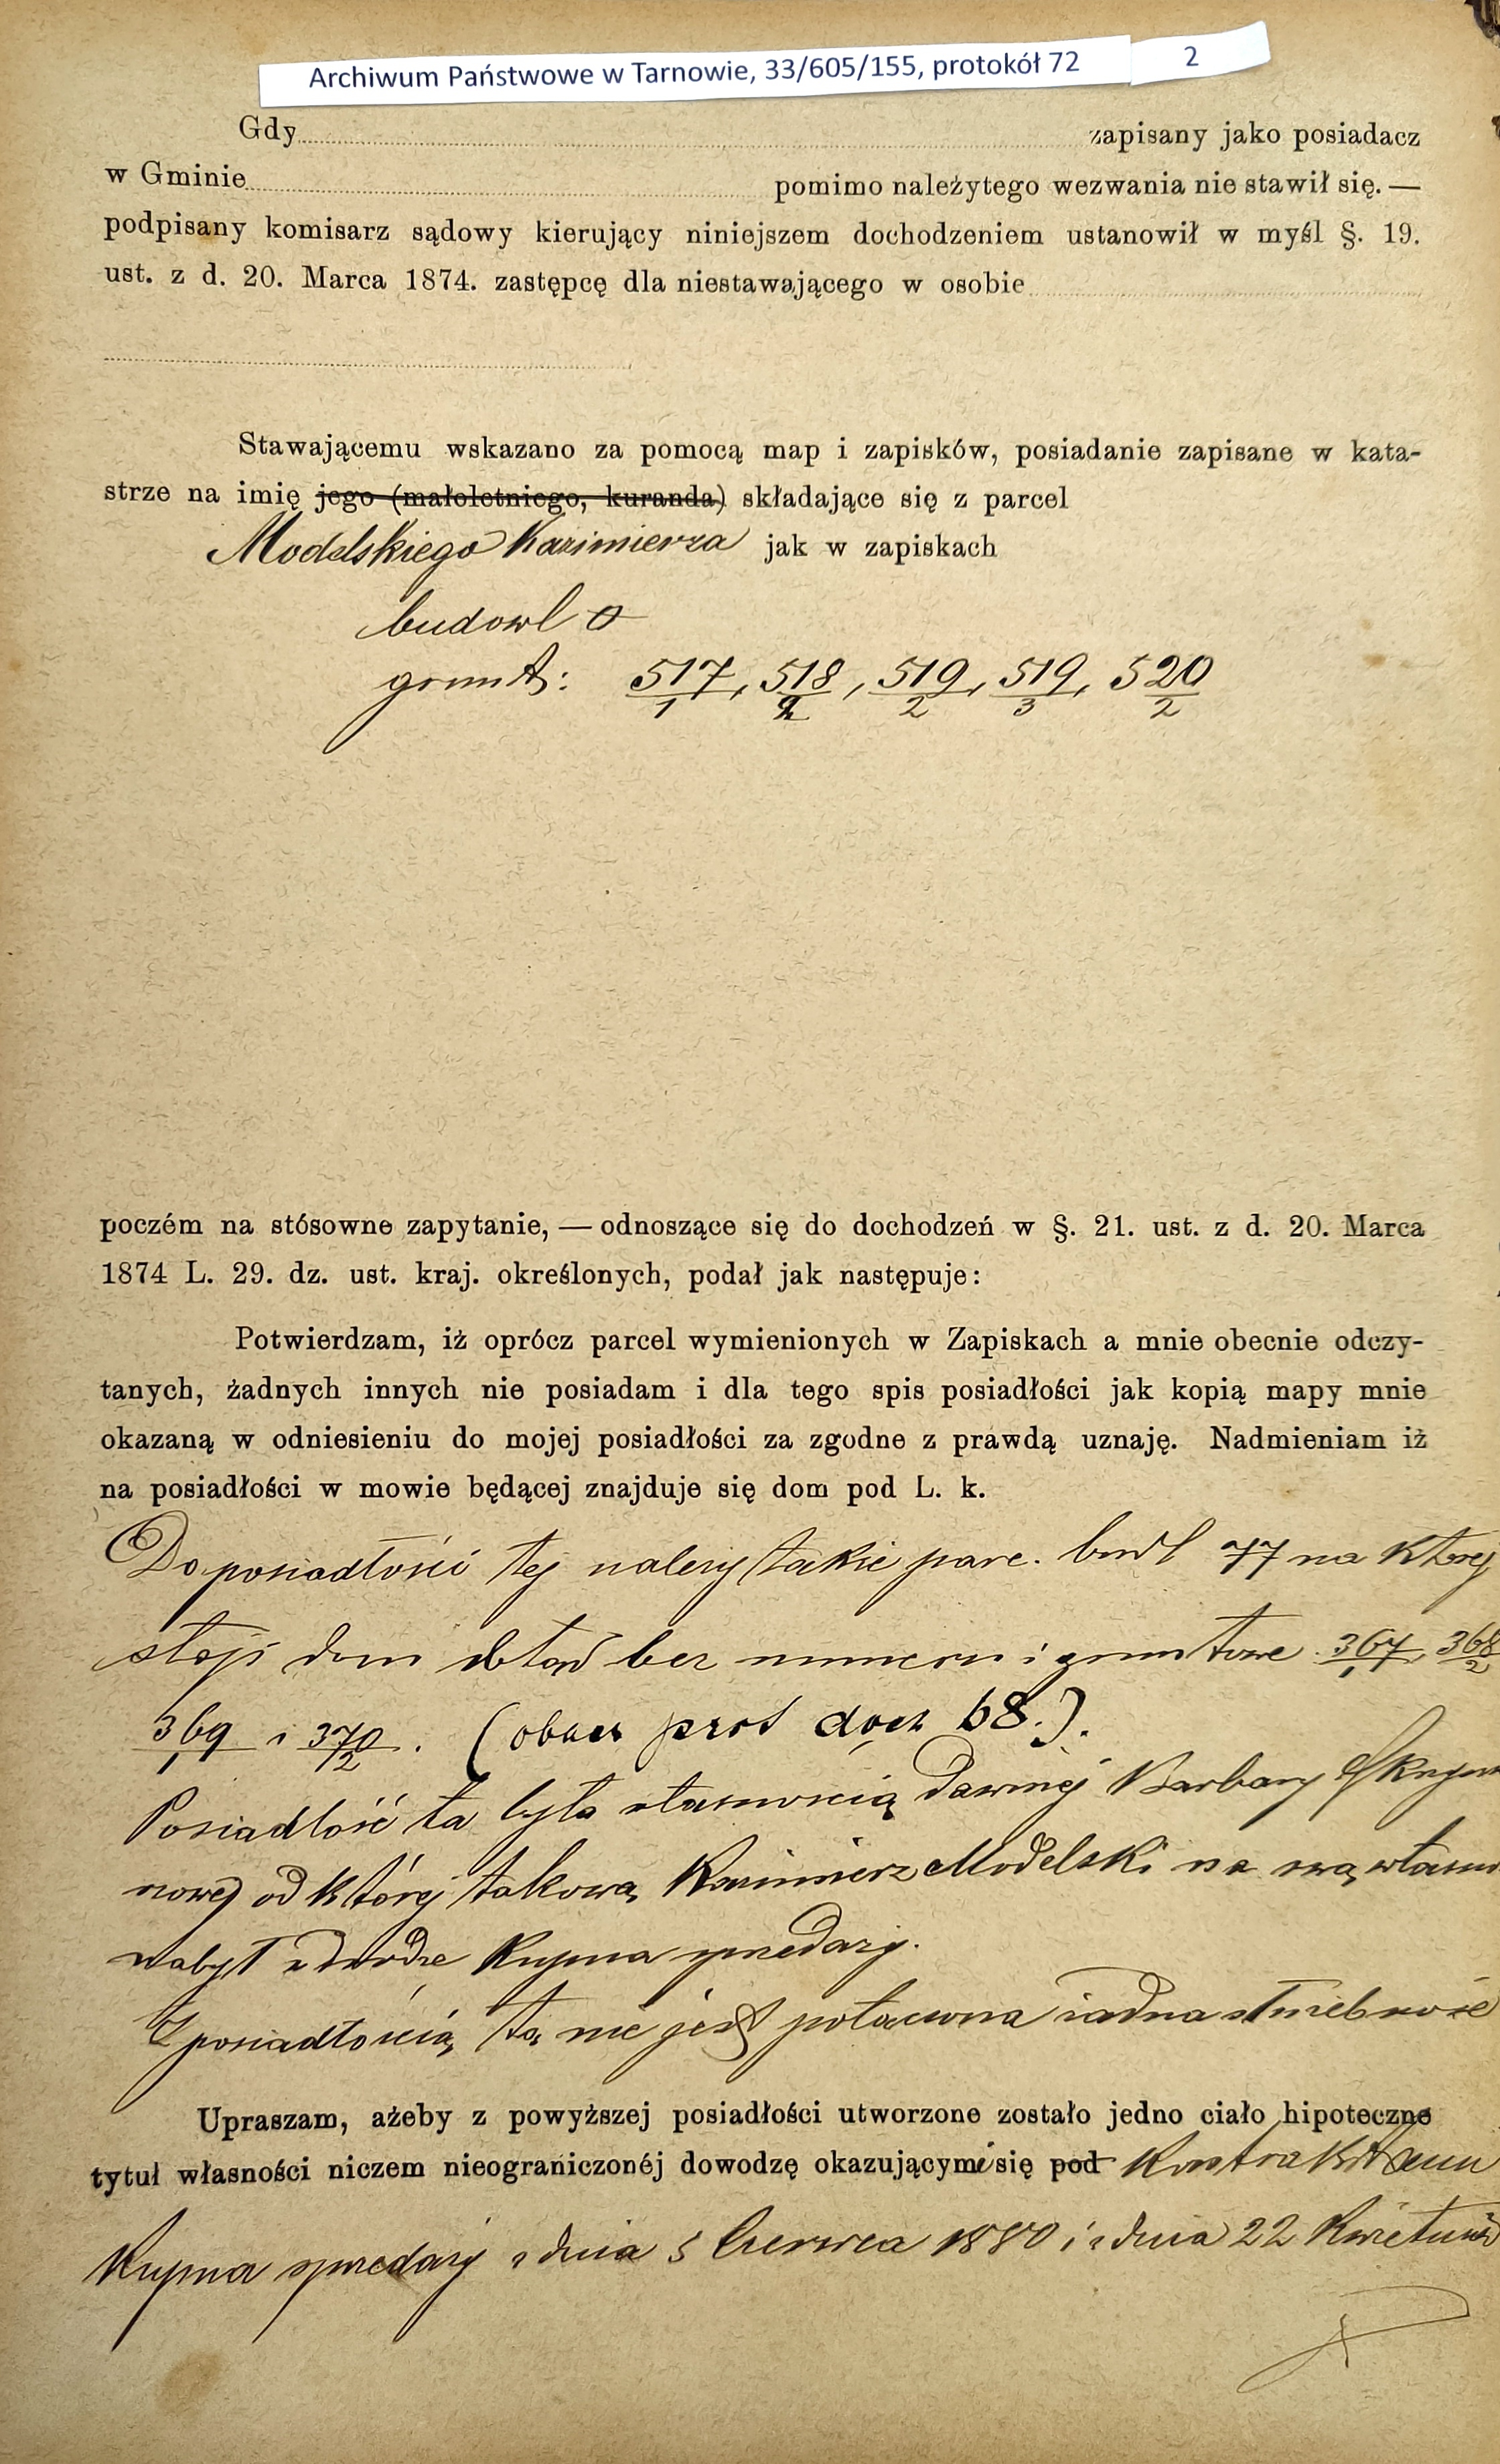 Archiwum Państwowe w Tarnowie, 33/605/155, protokół 72 2
Gdy zapisany jako posiadacz
w Gminie pomimo należytego wezwania nie stawił się. —
podpisany komisarz sądowy kierujący niniejszem dochodzeniem ustanowił w myśl §. 19.
ust. z d. 20. Marca 1874. zastępcę dla niestawającego w osobie
Stawającemu wskazano za pomocą map i zapisków, posiadanie zapisane w kata-
strze na imię jego (małoletniego, kuranda) składające się z parcel
Modelskiego Kazimierza jak w zapiskach
budowl 0
grunt: 517/1, 518/2, 519/2, 519/3, 520/2
poczém na stósowne zapytanie, — odnoszące się do dochodzeń w §. 21. ust. z d. 20. Marca
1874 L. 29. dz. ust. kraj. określonych, podał jak następuje:
Potwierdzam, iż oprócz parcel wymienionych w Zapiskach a mnie obecnie odczy-
tanych, żadnych innych nie posiadam i dla tego spis posiadłości jak kopią mapy mnie
okazaną w odniesieniu do mojej posiadłości za zgodne z prawdą uznaję. Nadmieniam iż
na posiadłości w mowie będącej znajduje się dom pod L. k.
Do posiadłości tej należy także parc. budl 77 na której
stoji dom dotąd bez numeru i gruntowe 367/1, 368/2
369/1 i 370/2. (obacz prot doch 68.).
Posiadłość ta była własnością dawniej Barbary Skrzyn
nowej od której takową Kazimierz Modelski na swą własn
nabył w drodze Kupna sprzedaży.
Z posiadłością tą nie jest połączona żadna służebność
Upraszam, ażeby z powyższej posiadłości utworzone zostało jedno ciało hipoteczne
tytuł własności niczem nieograniczonéj dowodzę okazującymi się pod Kontraktami
Kupna sprzedaży z dnia 5 Czerwca 1880 i z dnia 22 Kwietnia